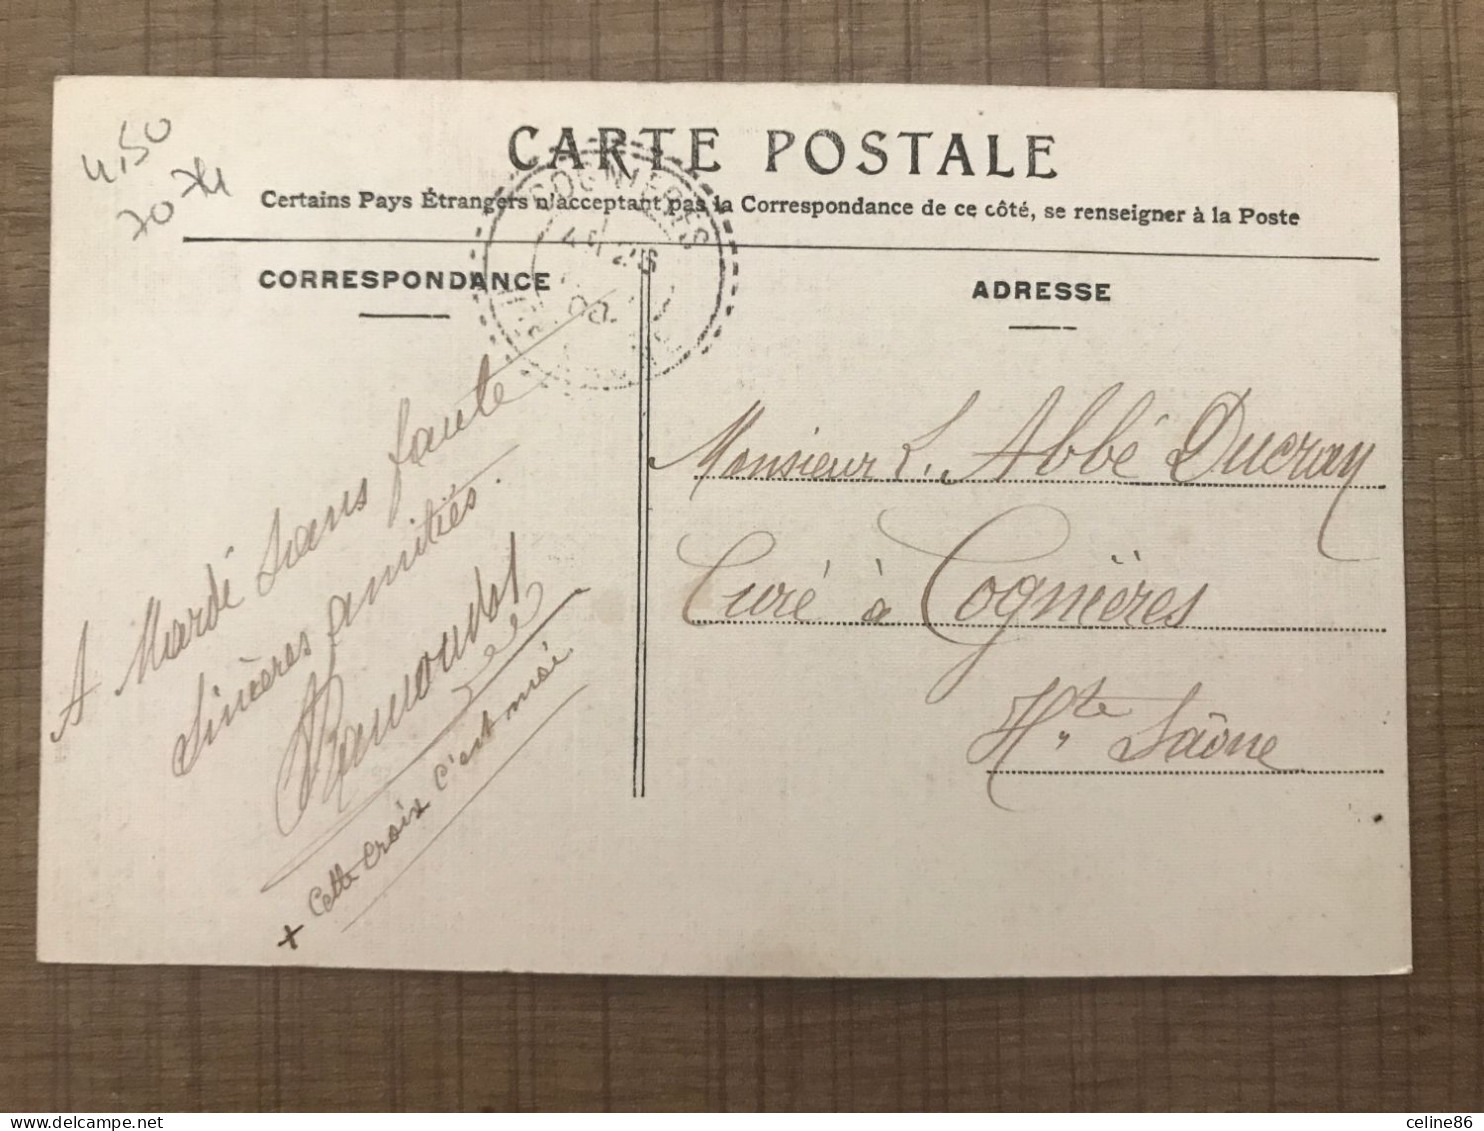 4,50
70
CARTE POSTALE
Certains Pays Étrangers n'acceptent pas la Correspondance de ce côté, se renseigner à la Poste
COGNIERES
CORRESPONDANCE
ADRESSE
A Mardi Sans faute
Sincères amitiés.
+ Cette croix c'est moi
Monsieur L. Abbé Ducray
Curé à Cognières
Hte Saône
celine86